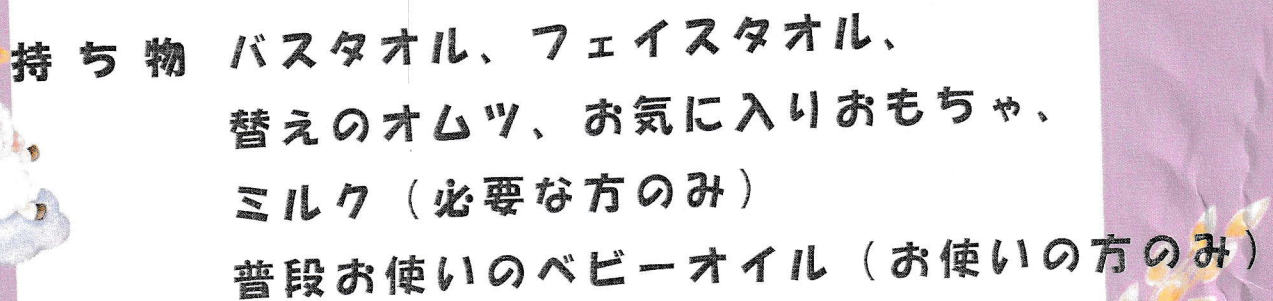 持ち物 バスタオル、フェイスタオル、
替えのオムツ、お気に入りおもちゃ、
ミルク（必要な方のみ）
普段お使いのベビーオイル（お使いの方のみ）